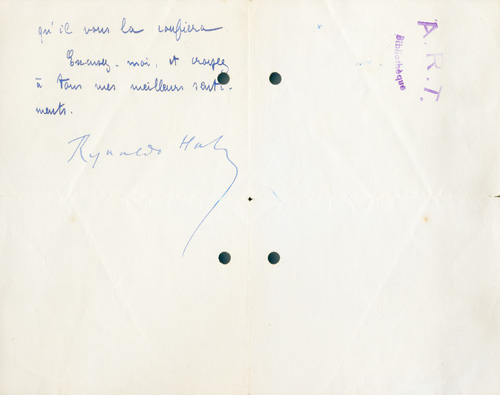 qu'il vous la confiera
Excusez-moi, et croyez
à tous mes meilleurs senti-
ments.
Reynaldo Hahn
A.R.T.
Bibliothèque